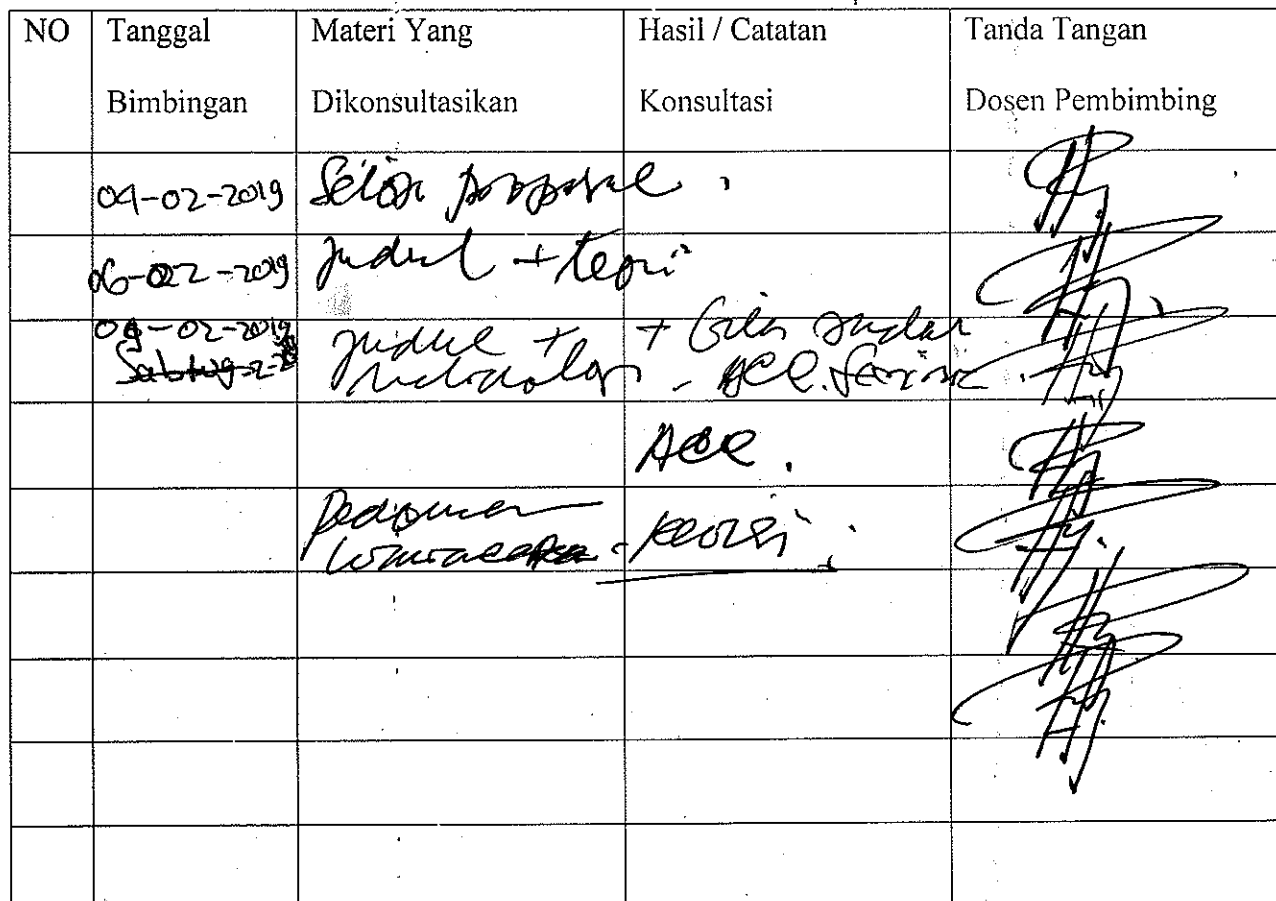 NO Tanggal Bimbingan Materi Yang Dikonsultasikan Hasil / Catatan Konsultasi Tanda Tangan Dosen Pembimbing
04-02-2019 Setor proposal
06-02-2019 judul + teori
09-02-2019 judul + + ACC
ACC.
Pedoman
wawancara - revisi.